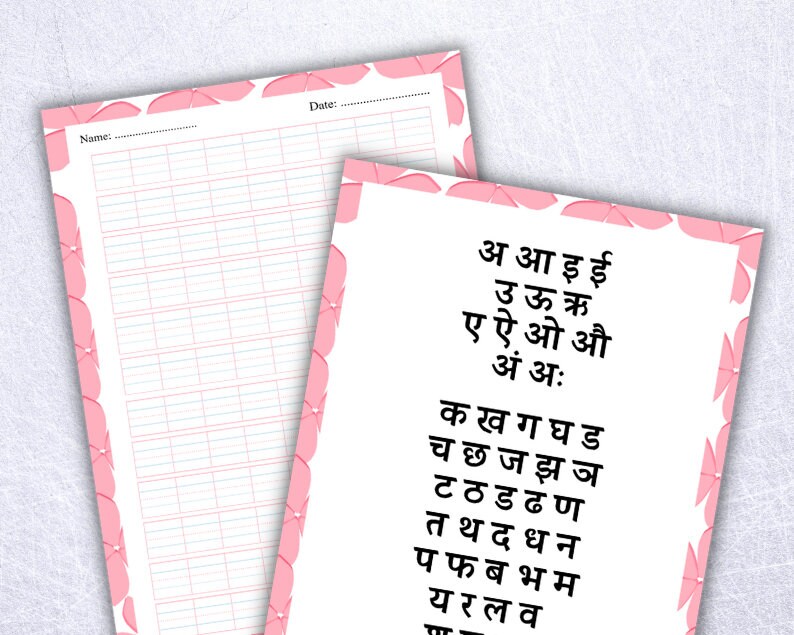 Name: ..........................
Date: ............................
अ आ इ ई
उ ऊ ऋ
ए ऐ ओ औ
अं अः
क ख ग घ ड
च छ ज झ ञ
ट ठ ड ढ ण
त थ द ध न
प फ ब भ म
य र ल व